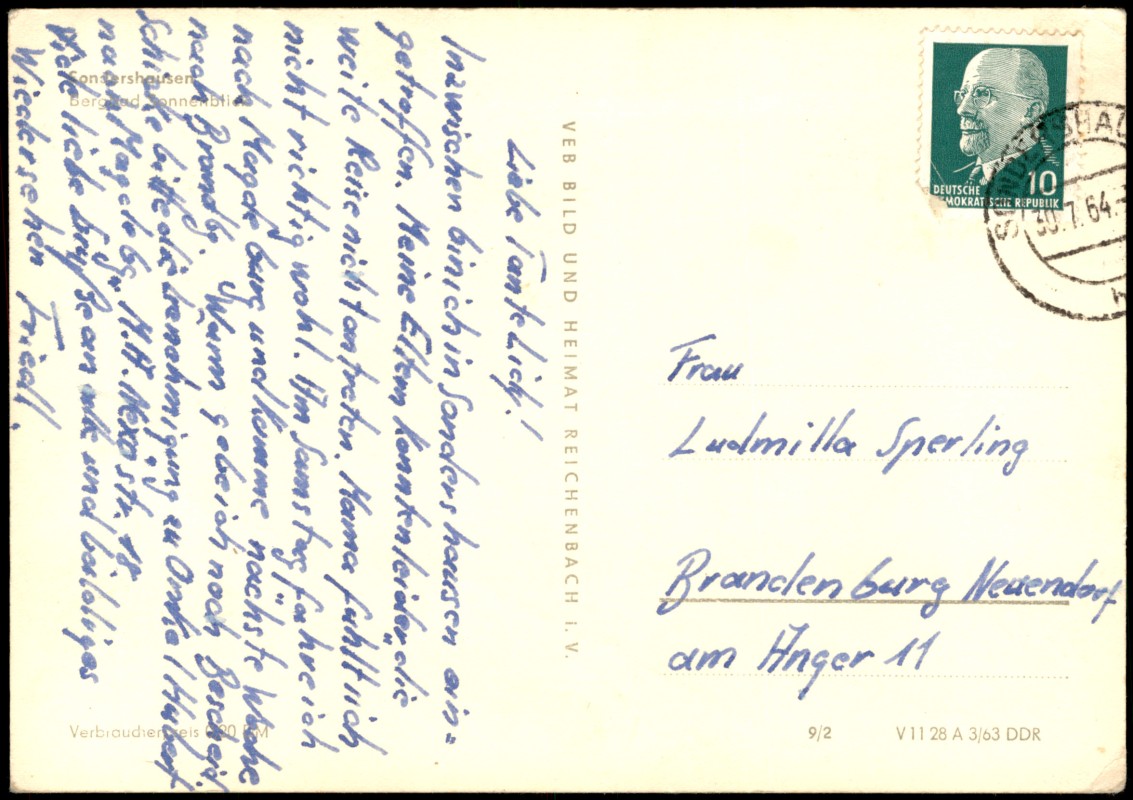 Sondershausen
Bergbad Sonnenblick
Liebe Tante Lich!
Inzwischen bin ich in Sondershausen ein=
getroffen. Meine Eltern konnten leider die
weite Reise nicht antreten. Mama fühlt sich
nicht richtig wohl. Am Samstag fahre ich
nach Magdeburg und komme nächste Woche
nach Brandbg. Wann gebe ich noch Bescheid.
Schicke bitte die Genehmigung zu Onkel Hubert
nach Magdebg. M.A. Nexöstr. 18
Viele liebe Grüße an alle und baldiges
Wiedersehen Friedl.
Verbraucherpreis 0,20 DM
VEB BILD UND HEIMAT REICHENBACH i. V.
DEUTSCHE
DEMOKRATISCHE REPUBLIK
10
30.7.64
Frau
Ludmilla Sperling
Brandenburg Neuendorf
am Anger 11
9/2
V 11 28 A 3/63 DDR